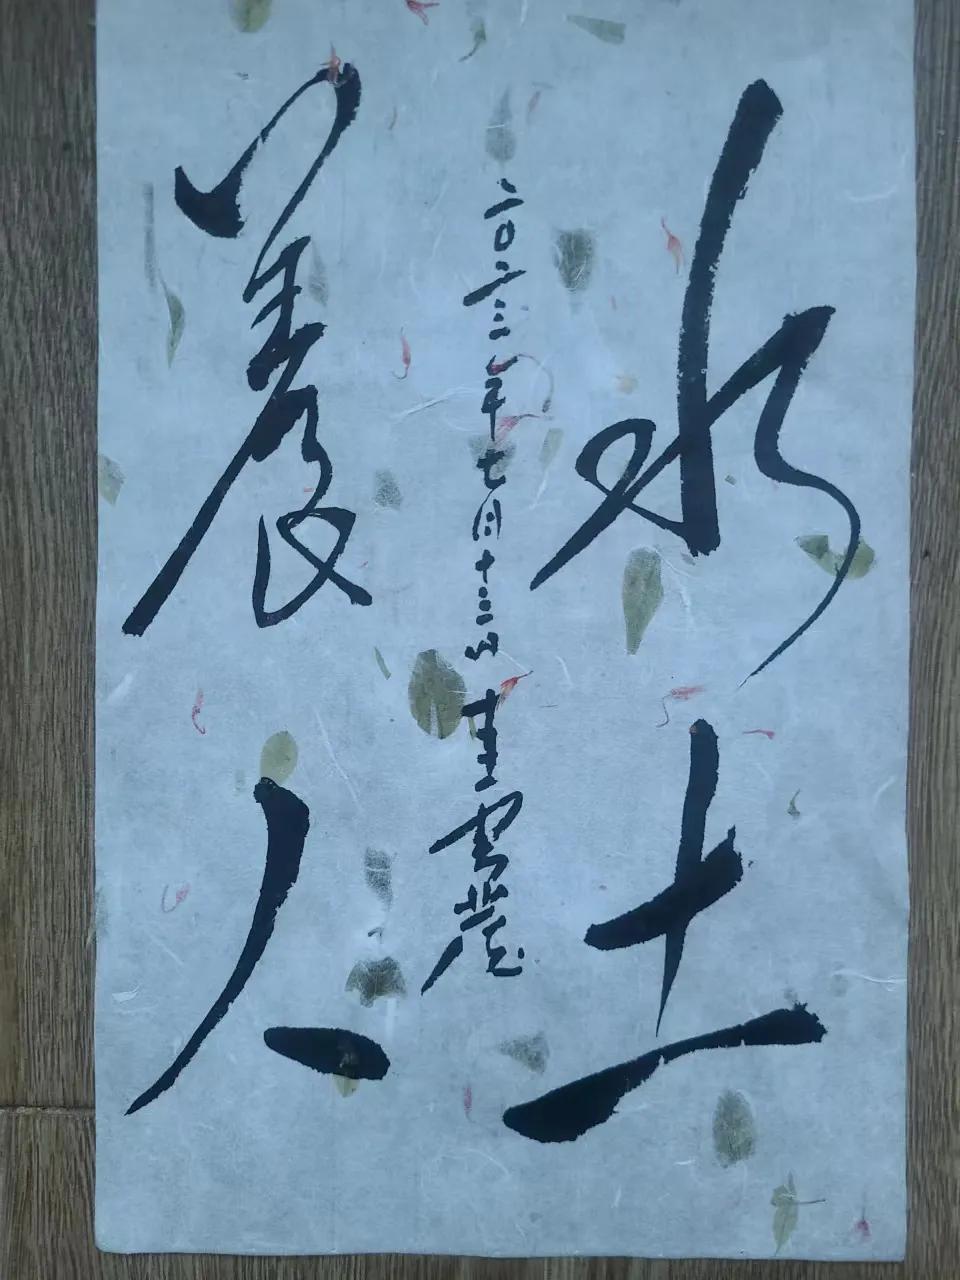 水土
二〇二三年七月十三日
養人